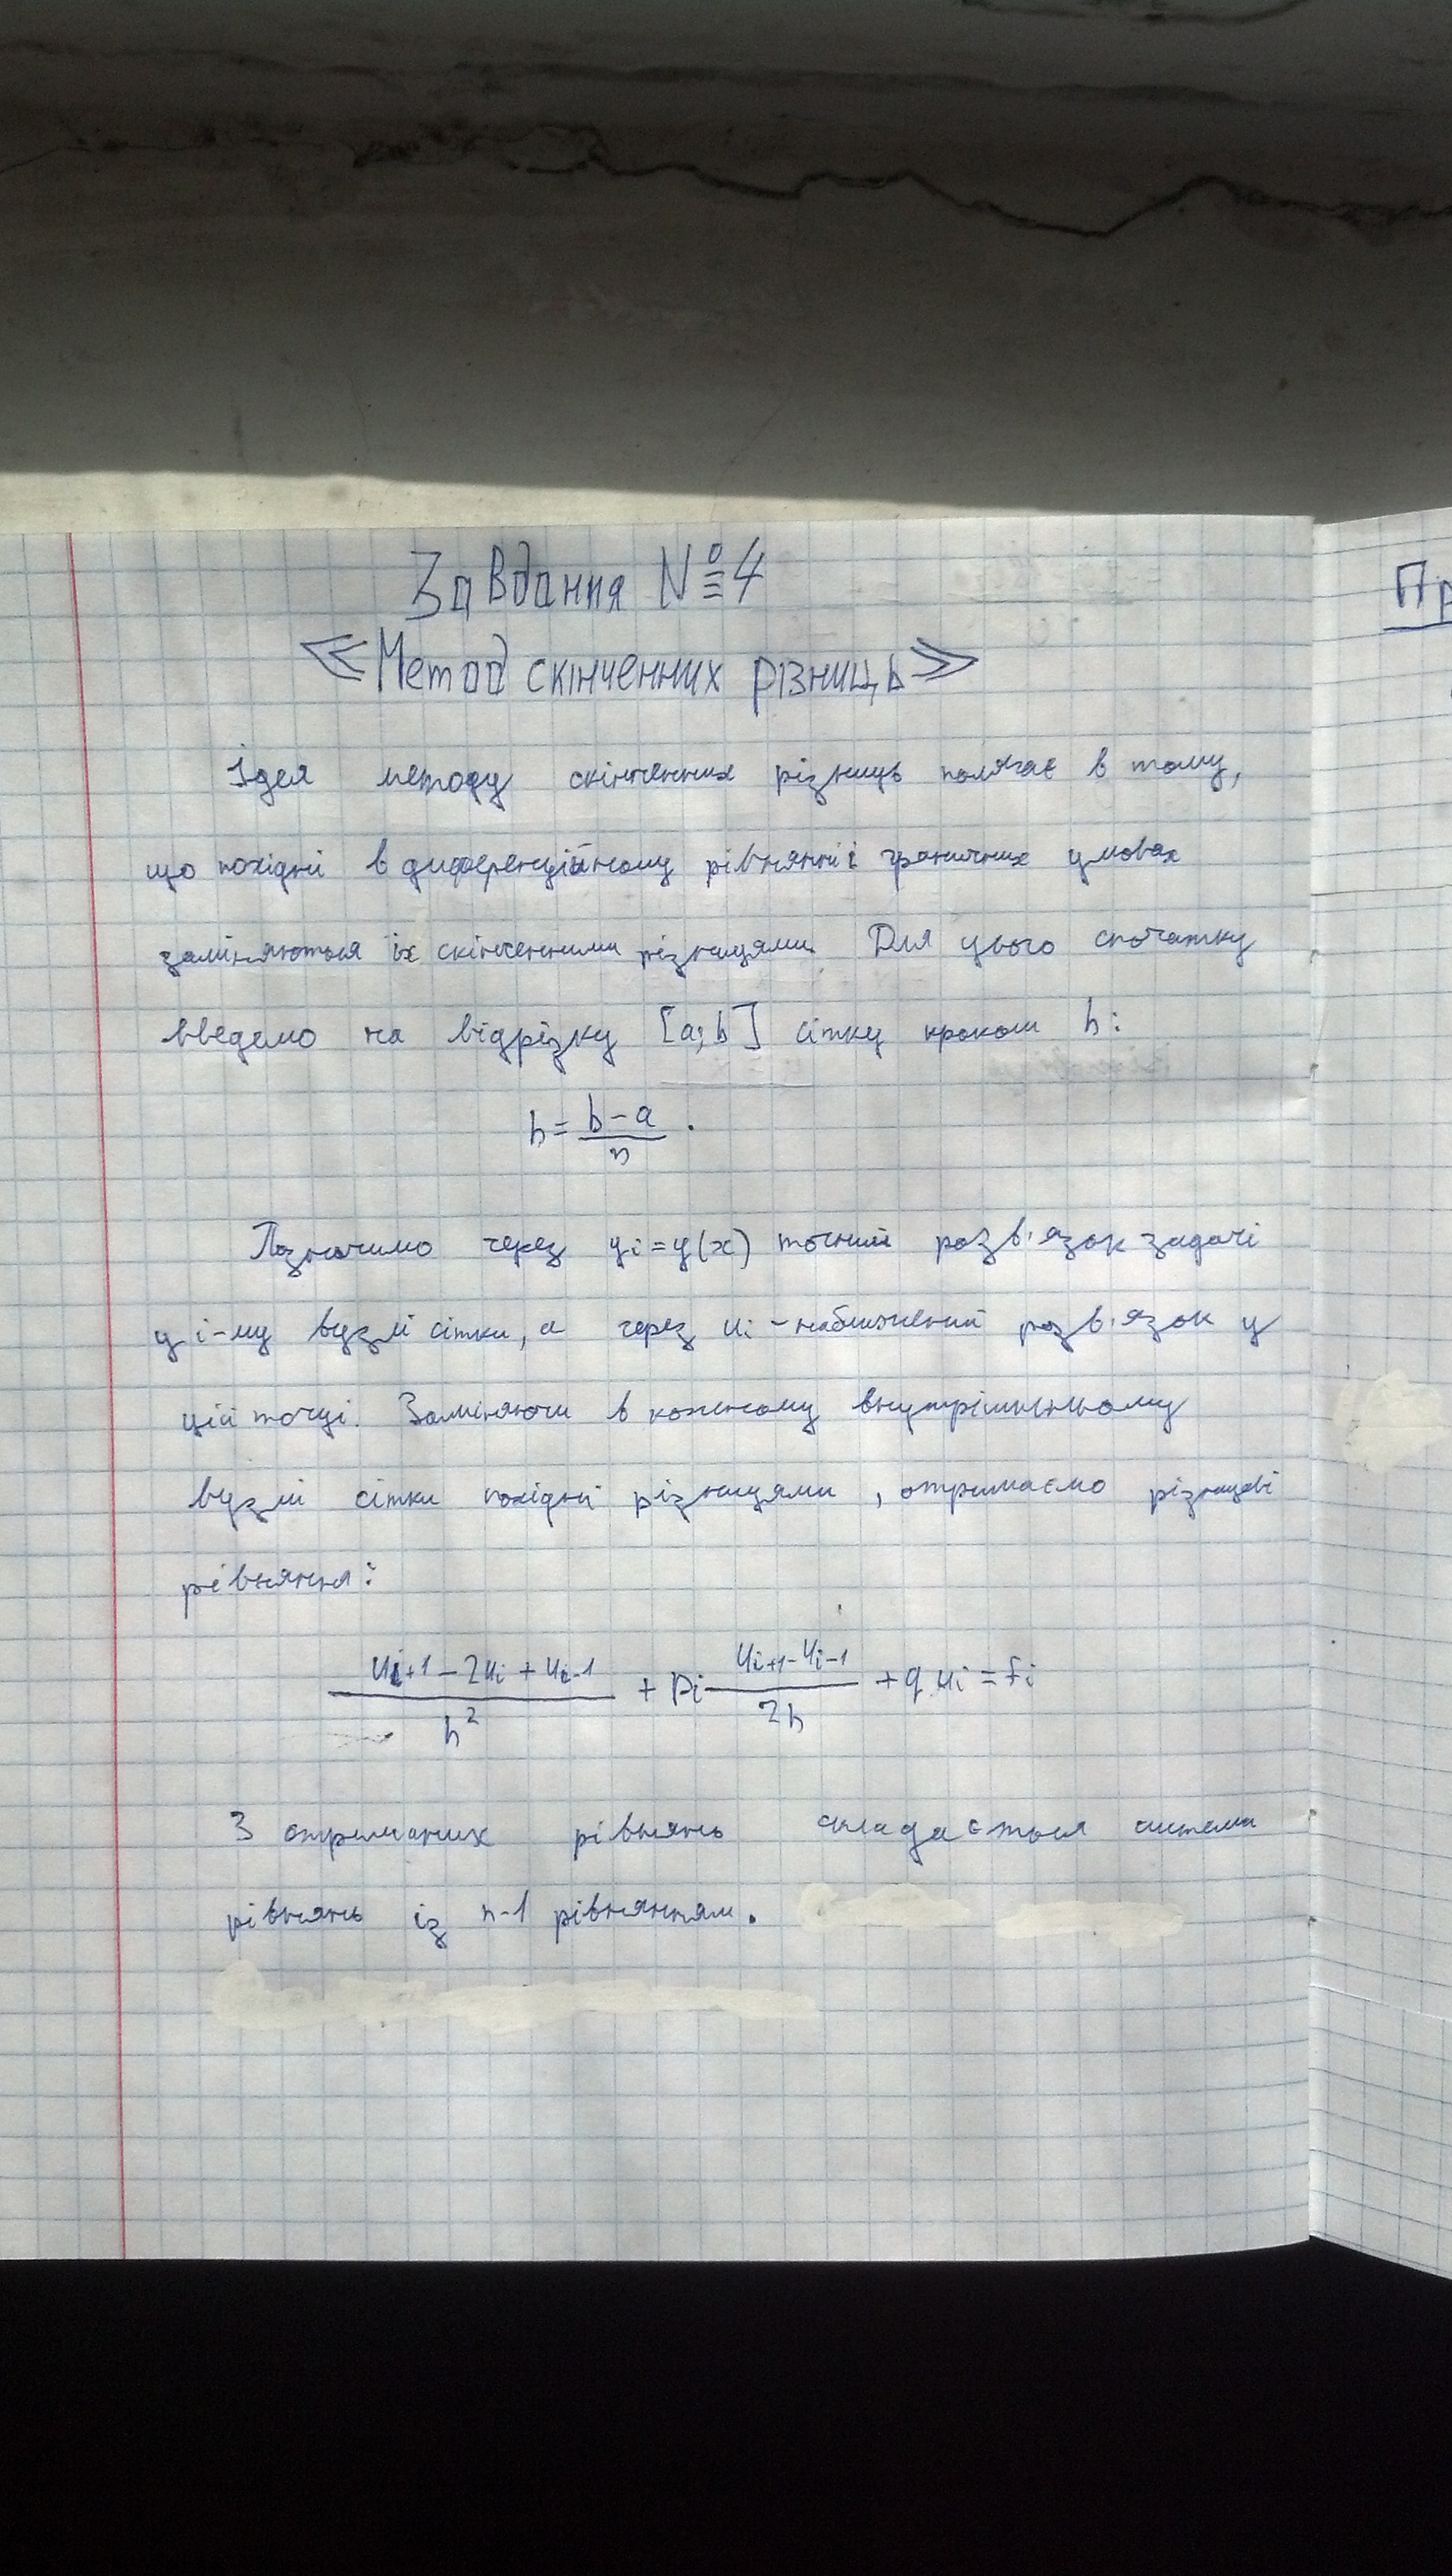 Завдання №4
≪Метод скінченних різниць≫
Ідея методу скінченних різниць полягає в тому,
що похідні в диференційному рівнянні і граничних умовах
заміняються їх скінченними різницями. Для цього спочатку
введемо на відрізку [a; b] сітку кроком h:
h = (b-a)/n .
Позначимо через yi = y(x) точний розв'язок задачі
у i-му вузлі сітки, а через ui - наближений розв'язок у
цій точці. Заміняючи в кожному внутрішньому
вузлі сітки похідні різницями, отримаємо різницеві
рівняння:
(ui+1 - 2ui + ui-1)/h² + pi (ui+1 - ui-1)/2h + q ui = fi
З отриманих рівнянь складається система
рівнянь із n-1 рівнянням.
Пр